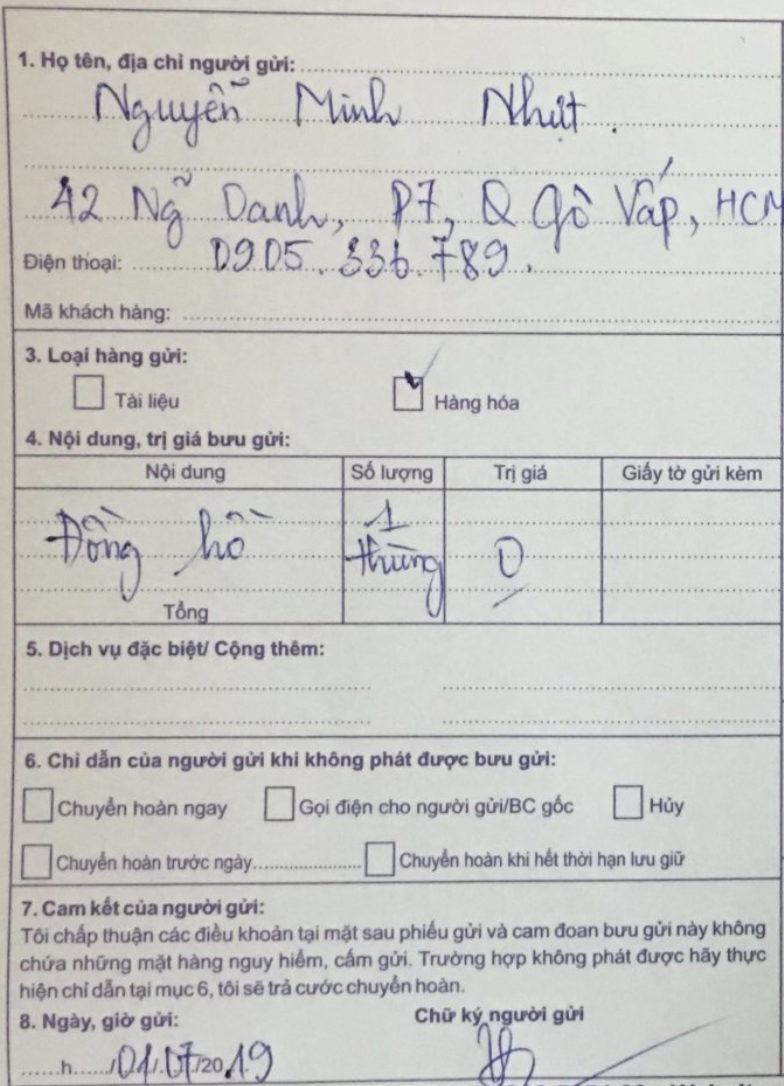 1. Họ tên, địa chỉ người gửi:
Nguyễn Minh Nhựt.
42 Ng̃ Danh, P7, Q Gò Vấp, HCM
Điện thoại: 0905.336.789.
Mã khách hàng:
3. Loại hàng gửi:
Tài liệu Hàng hóa
4. Nội dung, trị giá bưu gửi:
Nội dung Số lượng Trị giá Giấy tờ gửi kèm
Đồng hồ 1 thùng 0
Tổng
5. Dịch vụ đặc biệt/ Cộng thêm:
6. Chỉ dẫn của người gửi khi không phát được bưu gửi:
Chuyển hoàn ngay Gọi điện cho người gửi/BC gốc Hủy
Chuyển hoàn trước ngày.................... Chuyển hoàn khi hết thời hạn lưu giữ
7. Cam kết của người gửi:
Tôi chấp thuận các điều khoản tại mặt sau phiếu gửi và cam đoan bưu gửi này không
chứa những mặt hàng nguy hiểm, cấm gửi. Trường hợp không phát được hãy thực
hiện chỉ dẫn tại mục 6, tôi sẽ trả cước chuyển hoàn.
8. Ngày, giờ gửi: Chữ ký người gửi
......h....../01/07/2019